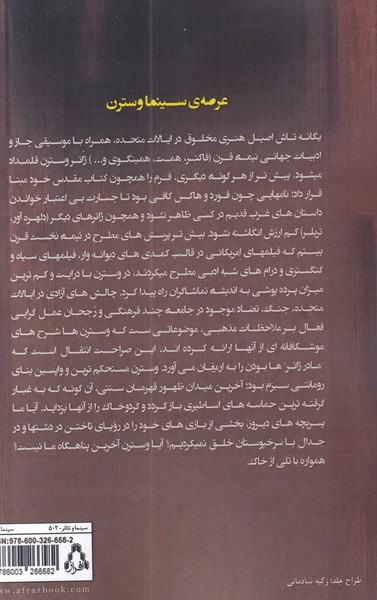 عرصه‌ی سینما وسترن
یگانه تاش اصیل هنری مخلوق در ایالات متحده، همراه با موسیقی جاز و
ادبیات جهانی نیمه‌ی قرن (فاکنر، همت، همینگوی و...) ژانر وسترن قلمداد
میشود. پیش تر از هر گونه دیگری، فرم را همچون کتاب مقدس خود مبنا
قرار داد؛ نامهایی چون فورد و هاکس کافی بود تا جسارت بی اعتبار خواندن
داستان های غرب قدیم در کسی ظاهر نشود و همچون ژانرهای دیگر (دلهره آور،
تریلر) کم ارزش انگاشته نشود. بیش تر پرسش های مطرح در نیمه‌ی نخست قرن
بیستم که فیلمهای امریکایی در قالب کمدی های دیوانه وار، فیلمهای سیاه و
گنگستری و درام های شبه ادبی مطرح میکردند، در وسترن با درایت و کم ترین
میزان پرده پوشی به اندیشه‌ی تماشاگران راه پیدا کرد. چالش های آزادی در ایالات
متحده، جنگ، تضاد موجود در جامعه‌ی چند فرهنگی و رُجحان عمل گرایی
فعال بر ملاحظات مذهبی، موضوعاتی ست که وسترن ها شرح های
موشکافانه ای از آنها ارائه کرده اند. این صراحت انتقال است که
"مادر ژانر ها بودن را به ارمغان می آورد. وسترن مستحکم ترین و واپسین بنای
رومانتی سیزم بود؛ آخرین میدان ظهور قهرمان سنتی، آن گونه که به غبار
گرفته ترین حماسه های اساطیری بازگردد و گردوخاک را از آنها بزداید. آیا ما
پسربچه های دیروز، بخشی از بازی های خود را در رؤیای تاختن در دشتها و در
جدال با سرخپوستان خلق نمیکردیم؟ آیا وسترن آخرین پناهگاه ما نیست؟
همواره با تلی از خاک.
سینما و تئاتر - ۵۰۳
سینما
BN: 978-600-326-658-2
786003 266582
افراز
www.afrazbook.com
طراح جلد: زکیه شادمانی